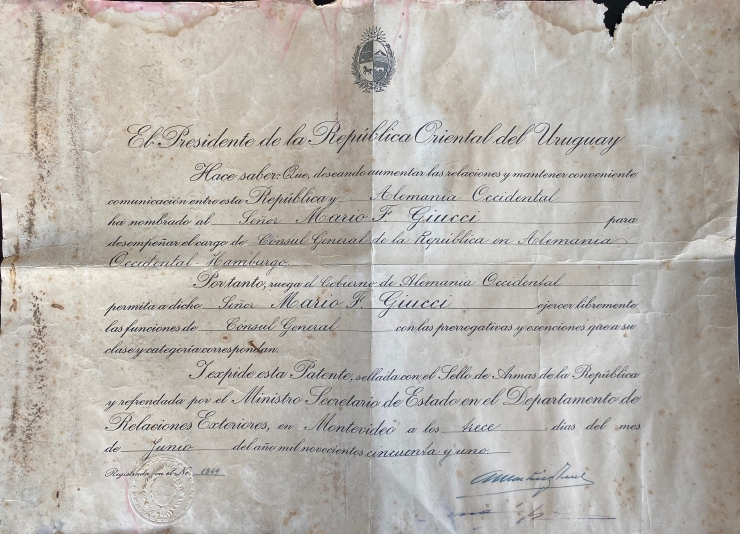 El Presidente de la República Oriental del Uruguay
Hace saber: Que, deseando aumentar las relaciones y mantener conveniente
comunicación entre esta República y Alemania Occidental
ha nombrado al Señor Mario F. Giucci para
desempeñar el cargo de Consul General de la República en Alemania
Occidental - Hamburgo.
Por tanto, ruega al Gobierno de Alemania Occidental
permita a dicho Señor Mario F. Giucci ejercer libremente
las funciones de Consul General con las prerrogativas y exenciones que a su
clase y categoría correspondan.
I expide esta Patente, sellada con el Sello de Armas de la República
y refrendada por el Ministro Secretario de Estado en el Departamento de
Relaciones Exteriores, en Montevideo a los trece días del mes
de Junio del año mil novecientos cincuenta y uno
Registrada con el No.